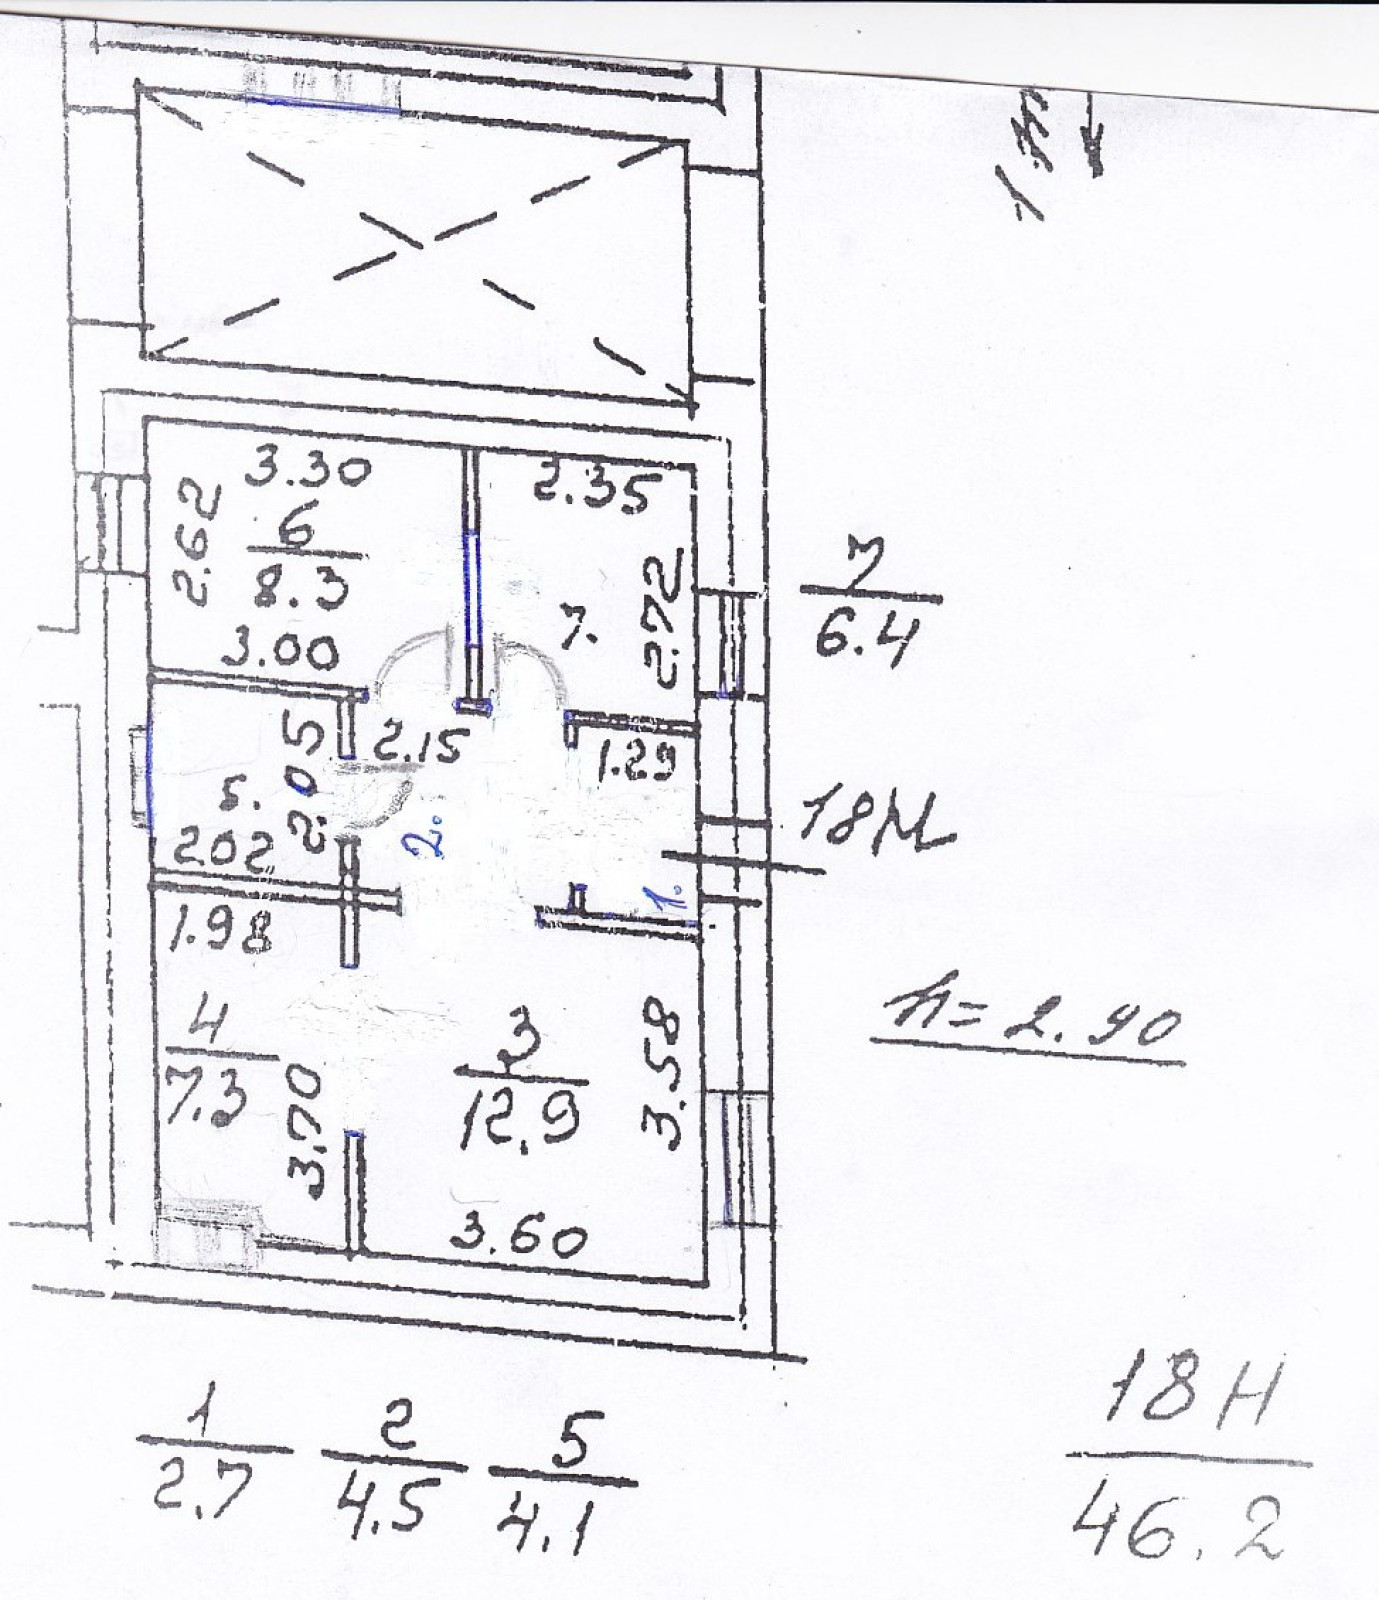 3.30
2.35
2.62
6
8.3
2.72
7
6.4
7.
3.00
2.05
2.15
1.29
5.
2.02
2.
18Н
1.
1.98
h=2.90
4
7.3
3.70
3
12.9
3.58
3.60
1
2.7
2
4.5
5
4.1
18Н
46.2